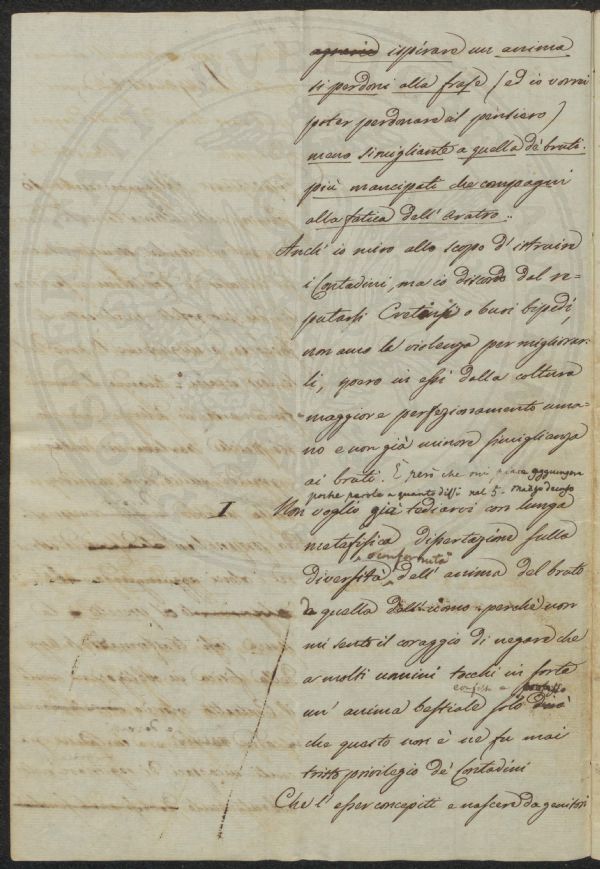 ispirare un anima
si perdoni alla frase (ed io vorrei
poter perdonare al pensiero)
meno simigliante a quella de' bruti
più mancipati che compagni
alla fatica dell' Aratro..
Anch' io miro allo scopo d' istruire
i Contadini, ma io discordo dal re-
putarli Cretensi o buoi bipedi,
non amo la violenza per migliorar-
li, spero in essi dalla coltura
maggiore perfezionamento uma-
no e non già minore simiglianza
ai bruti. E però che mi piace aggiungere
poche parole a quanto dissi nel 5 Marzo decorso
I Non voglio già tediarvi con lunga
metafisica dissertazione sulla
o conformità
diversità dell' anima del bruto
da quella dell' uomo perché non
mi sento il coraggio di negare che
a molti uomini tocchi in sorte
confesso
un' anima bestiale solo dirò
che questo non è ne fu mai
tristo privilegio de' Contadini
Che l' esser concepiti e nascere da genitori